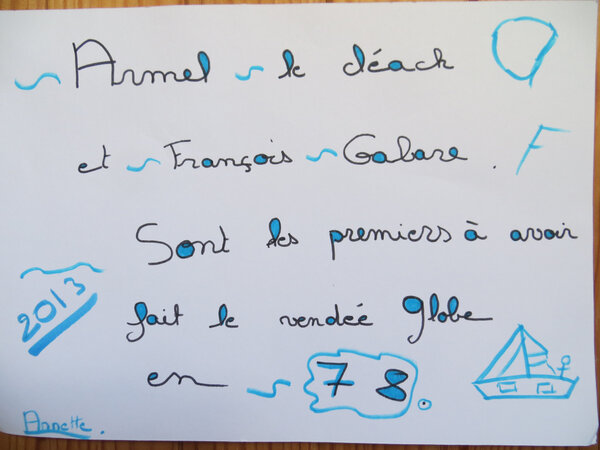 Armel le déack
et François Gabare. F
Sont les premiers à avoir
fait le vendée globe
en 78.
2013
Annette.